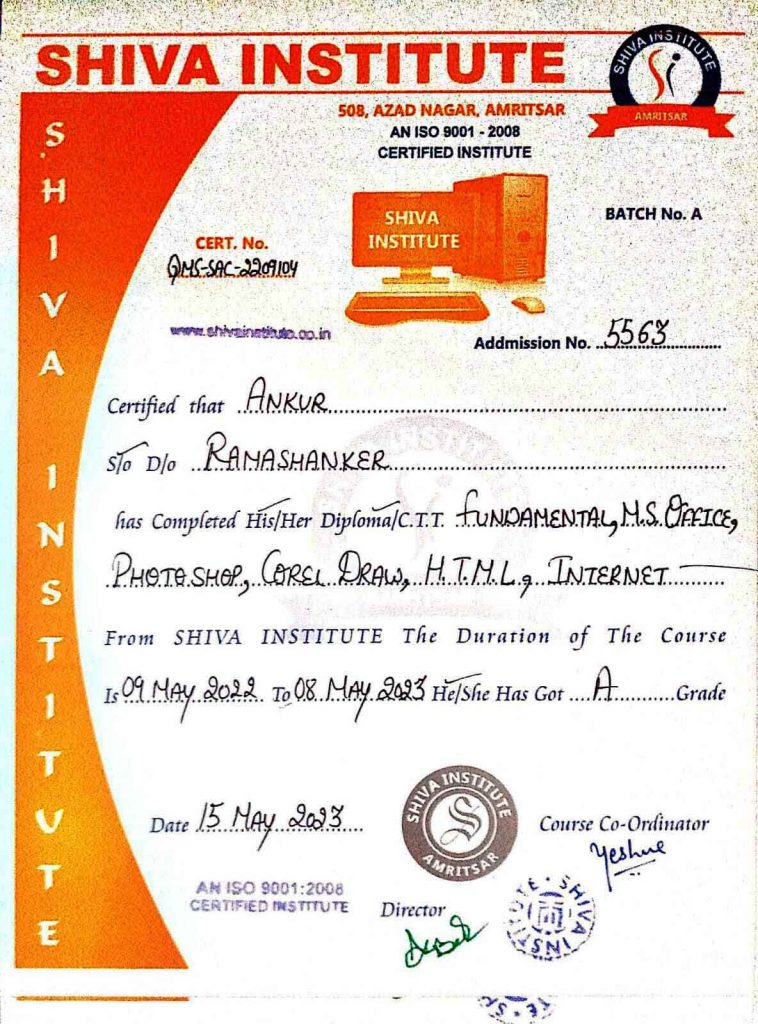 SHIVA INSTITUTE
SHIVA INSTITUTE
AMRITSAR
508, AZAD NAGAR, AMRITSAR
AN ISO 9001 - 2008
CERTIFIED INSTITUTE
SHIVA INSTITUTE
SHIVA
INSTITUTE
BATCH No. A
CERT. No.
QMS-SAC-2209104
www.shivainstitute.co.in
Addmission No. 5563
Certified that ANKUR
S/o D/o RAMASHANKER
has Completed His/Her Diploma/C.T.T. FUNDAMENTAL, M.S. OFFICE,
PHOTOSHOP, COREL DRAW, H.T.M.L, INTERNET
From SHIVA INSTITUTE The Duration of The Course
Is 09 MAY 2022 To 08 MAY 2023 He/She Has Got A Grade
Date 15 MAY 2023
SHIVA INSTITUTE
AMRITSAR
Course Co-Ordinator
Yeshue
AN ISO 9001:2008
CERTIFIED INSTITUTE
Director
SHIVA INSTITUTE